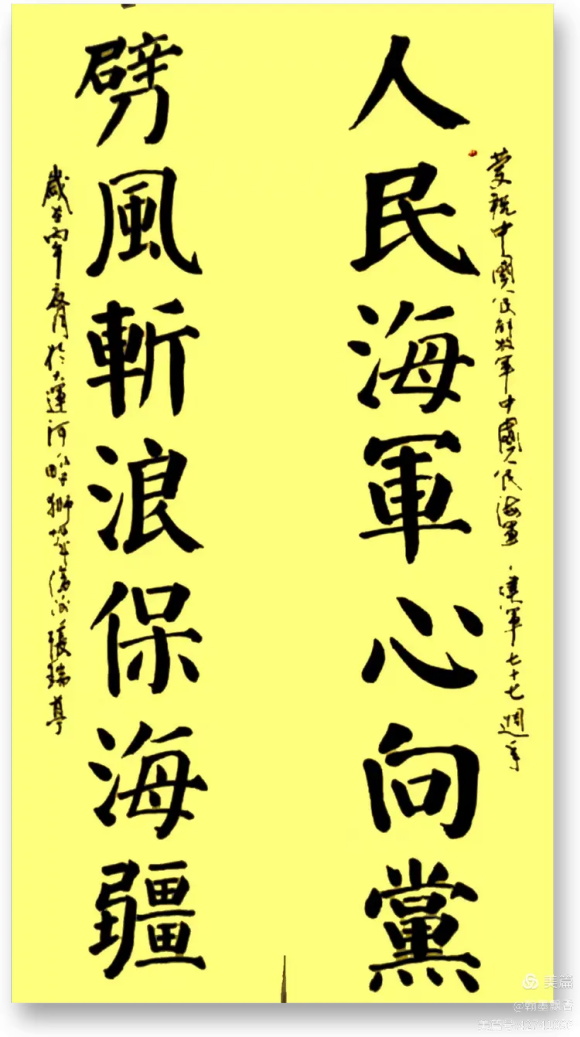 人民海軍心向黨
慶祝中國人民解放军中國人民海軍·建軍七十七週年
劈風斬浪保海疆
歲在丙午夏月於大運河畔獅城傷心張瑞亭
美篇